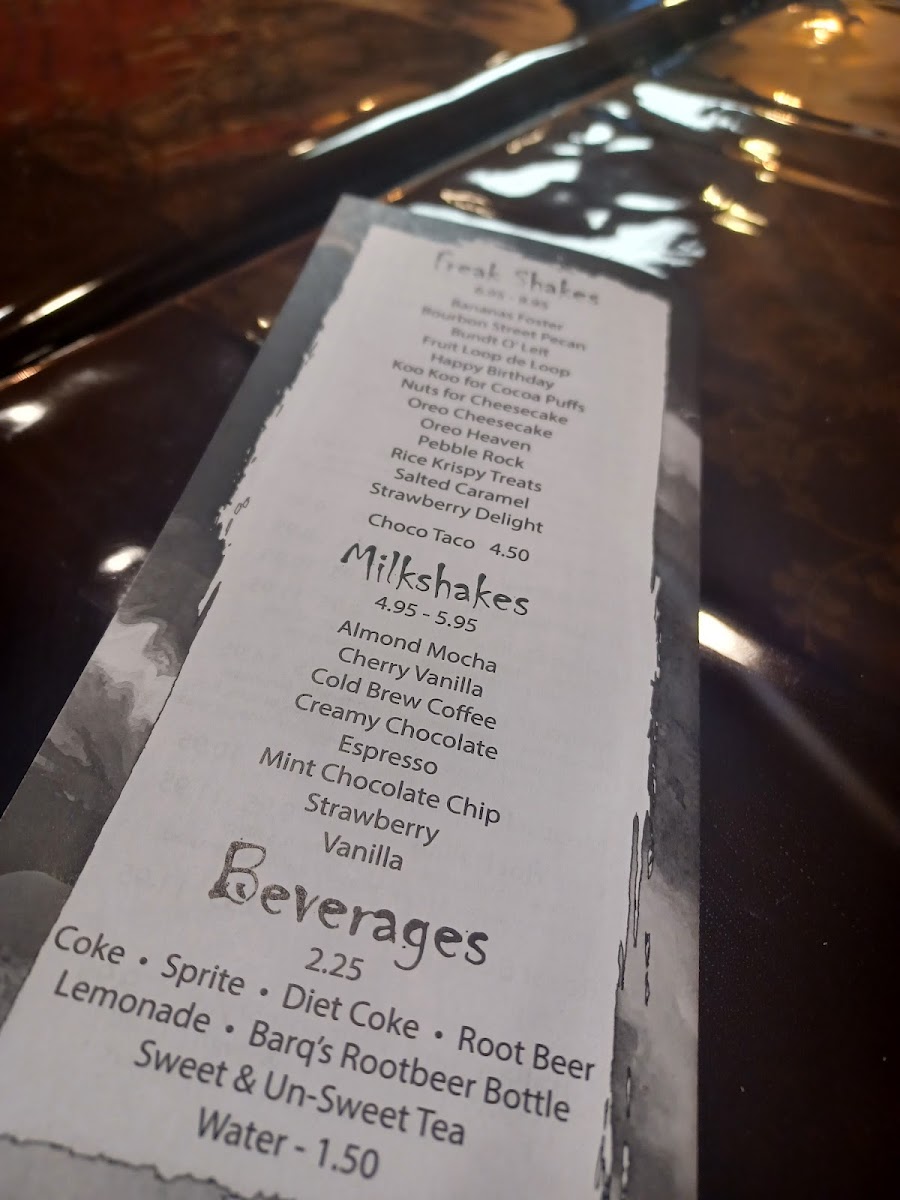 Freak Shakes
Bananas Foster
Bourbon Street Pecan
Bundt O' Left
Fruit Loop de Loop
Happy Birthday
Koo Koo for Cocoa Puffs
Nuts for Cheesecake
Oreo Cheesecake
Oreo Heaven
Pebble Rock
Rice Krispy Treats
Salted Caramel
Strawberry Delight
Choco Taco 4.50
Milkshakes
4.95 - 5.95
Almond Mocha
Cherry Vanilla
Cold Brew Coffee
Creamy Chocolate
Espresso
Mint Chocolate Chip
Strawberry
Vanilla
Beverages
2.25
Coke • Sprite • Diet Coke • Root Beer
Lemonade • Barq's Rootbeer Bottle
Sweet & Un-Sweet Tea
Water - 1.50